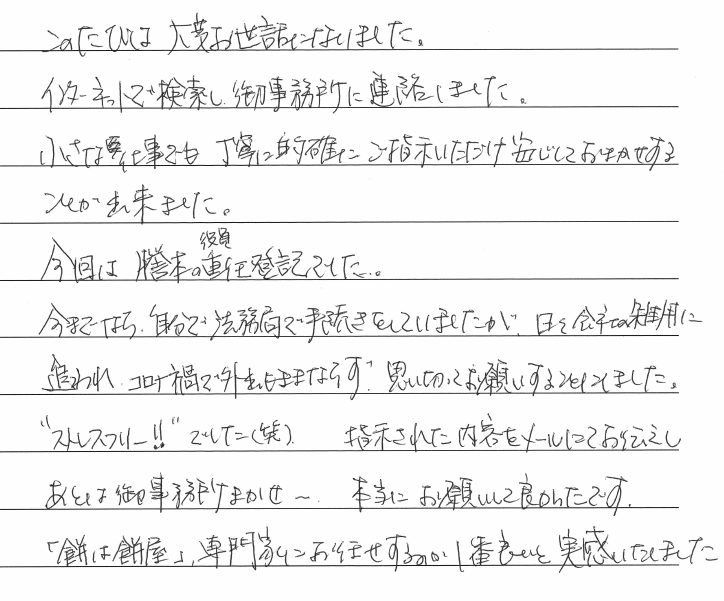 このたびは 大変お世話になりました。
インターネットで検索し 御事務所に連絡しました。
小さな仕事でも 丁寧に的確にご指示いただけ 安心しておまかせする
ことが出来ました。
役員
今回は 謄本の重任登記でした。
今までなら、自分で法務局で手続きをしていましたが、日々会社の雑用に
追われ コロナ禍で外出もままならず、思い切ってお願いすることにしました。
"ストレスフリー!!" でした(笑) 指示された内容をメールにてお伝えし
あとは御事務所まかせ〜 本当に お願いして良かったです。
「餅は餅屋」、専門家にお任せするのが1番良いと実感いたしました